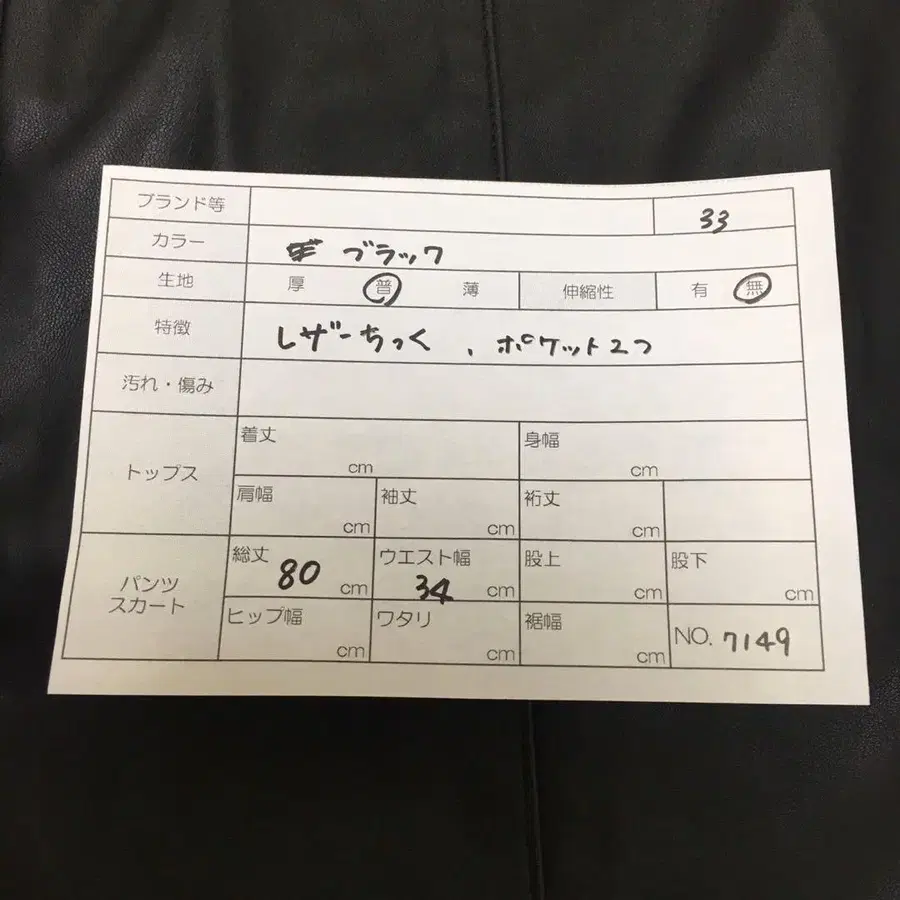 ブランド等 33
カラー ブラック
生地 厚 普 薄 伸縮性 有 無
特徴 レザーちっく、ポケット2つ
汚れ・傷み
トップス
着丈 cm 身幅 cm
肩幅 cm 袖丈 cm 裄丈 cm
パンツ
スカート
総丈 80 cm ウエスト幅 34 cm 股上 cm 股下 cm
ヒップ幅 cm ワタリ cm 裾幅 cm NO. 7149